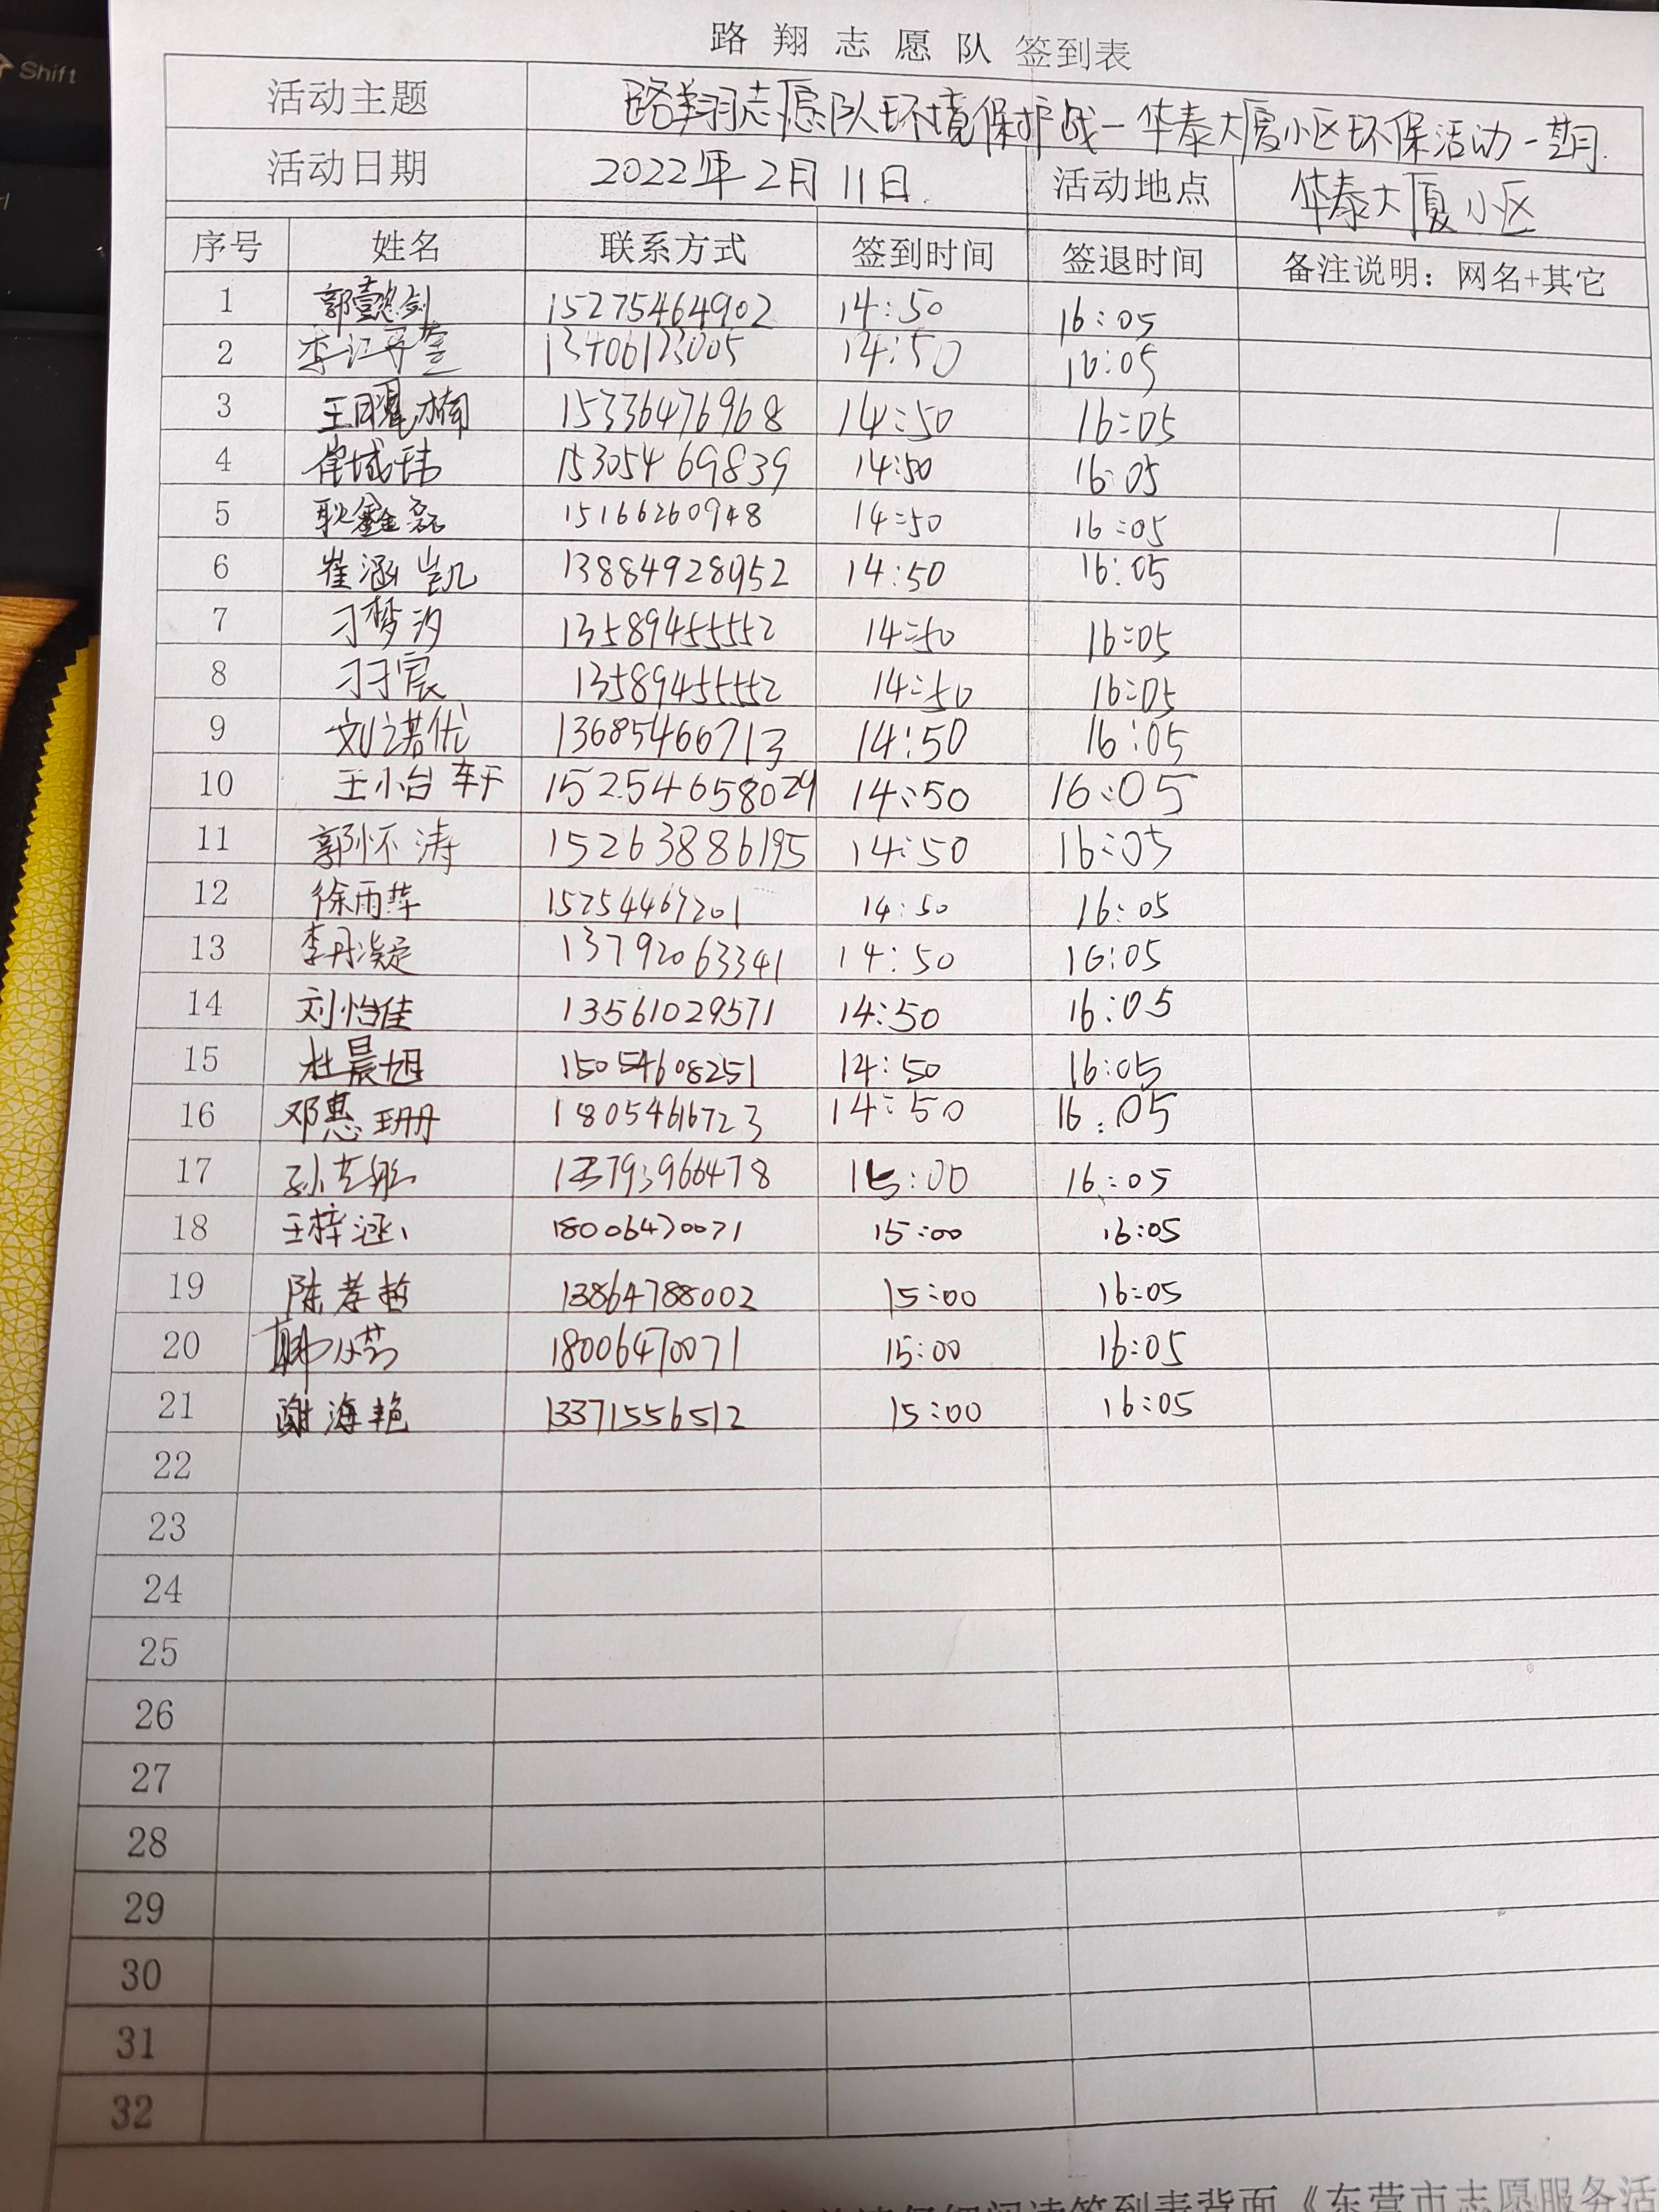 Shift
路 翔 志 愿 队 签到表
活动主题 路翔志愿队环境保护战一华泰大厦小区环保活动一期
活动日期 2022年2月11日. 活动地点 华泰大厦小区
序号 姓名 联系方式 签到时间 签退时间 备注说明：网名+其它
1 郭懿剑 15275464902 14:50 16:05
2 13406123005 14:50 16:05
3 王曜楠 15336476968 14:50 16:05
4 崔域玮 15305469839 14:50 16:05
5 耿鑫磊 15166260948 14:50 16:05
6 崔涵凯 13884928952 14:50 16:05
7 刁梦汐 13589455552 14:50 16:05
8 刁宸 13589455552 14:50 16:05
9 刘诺优 13685466713 14:50 16:05
10 王小台轩 15254658024 14:50 16:05
11 郭怀涛 15263886195 14:50 16:05
12 徐雨萍 15254467201 14:50 16:05
13 李丹凝 13792063341 14:50 16:05
14 刘怡佳 13561029571 14:50 16:05
15 杜晨旭 15054608251 14:50 16:05
16 邓惠珊 18054616723 14:50 16:05
17 13793966478 15:00 16:05
18 王梓涵 18006470071 15:00 16:05
19 陈孝哲 13864788002 15:00 16:05
20 18006470071 15:00 16:05
21 谢海艳 13371556512 15:00 16:05
22
23
24
25
26
27
28
29
30
31
32
签到表背面《东营市志愿服务活